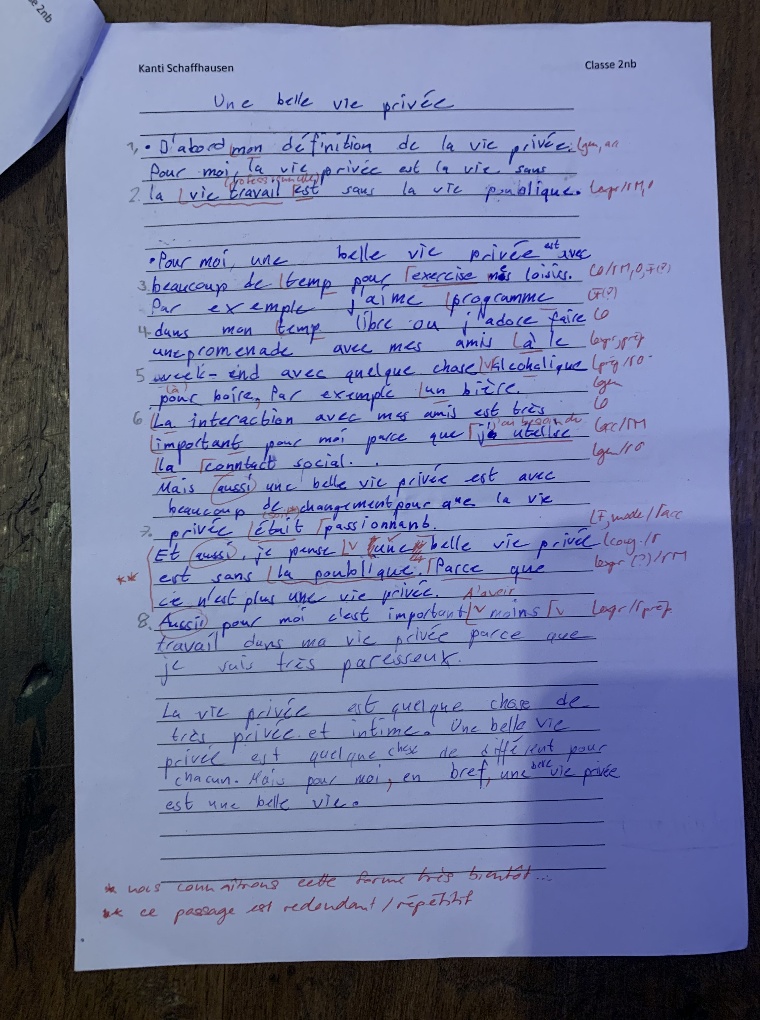 e 2nb
Kanti Schaffhausen Classe 2nb
Une belle vie privée
1, • D'abord mon définition de la vie privée.
Pour moi, la vie privée est la vie sans
2. la vie travail est sans la vie poublique.
•Pour moi, une belle vie privée est avec
3. beaucoup de temp pour exercise mes loisirs.
Par exemple j'aime programme
4. dans mon temp libre ou j'adore faire
une promenade avec mes amis à le
5 week-end avec quelque chose alcoholique
pour boire, Par exemple un bière.
6 La interaction avec mes amis est très
j'ai besoin du
important pour moi parce que utilise
la conntact social.
Mais aussi une belle vie privée est avec
beaucoup de changement pour que la vie
7. privée était passionnant.
Et aussi, je pense une belle vie privée
** est sans la poublique. Parce que
ce n'est plus une vie privée. d'avoir
8. Aussi pour moi c'est important moins
travail dans ma vie privée parce que
je suis très paresseux.
La vie privée est quelque chose de
très privée et intime. Une belle vie
privée est quelque chose de différent pour
chacun. Mais pour moi, en bref, une belle vie privée
est une belle vie.
* nous connaîtrons cette forme très bientôt...
** ce passage est redondant / répétitif